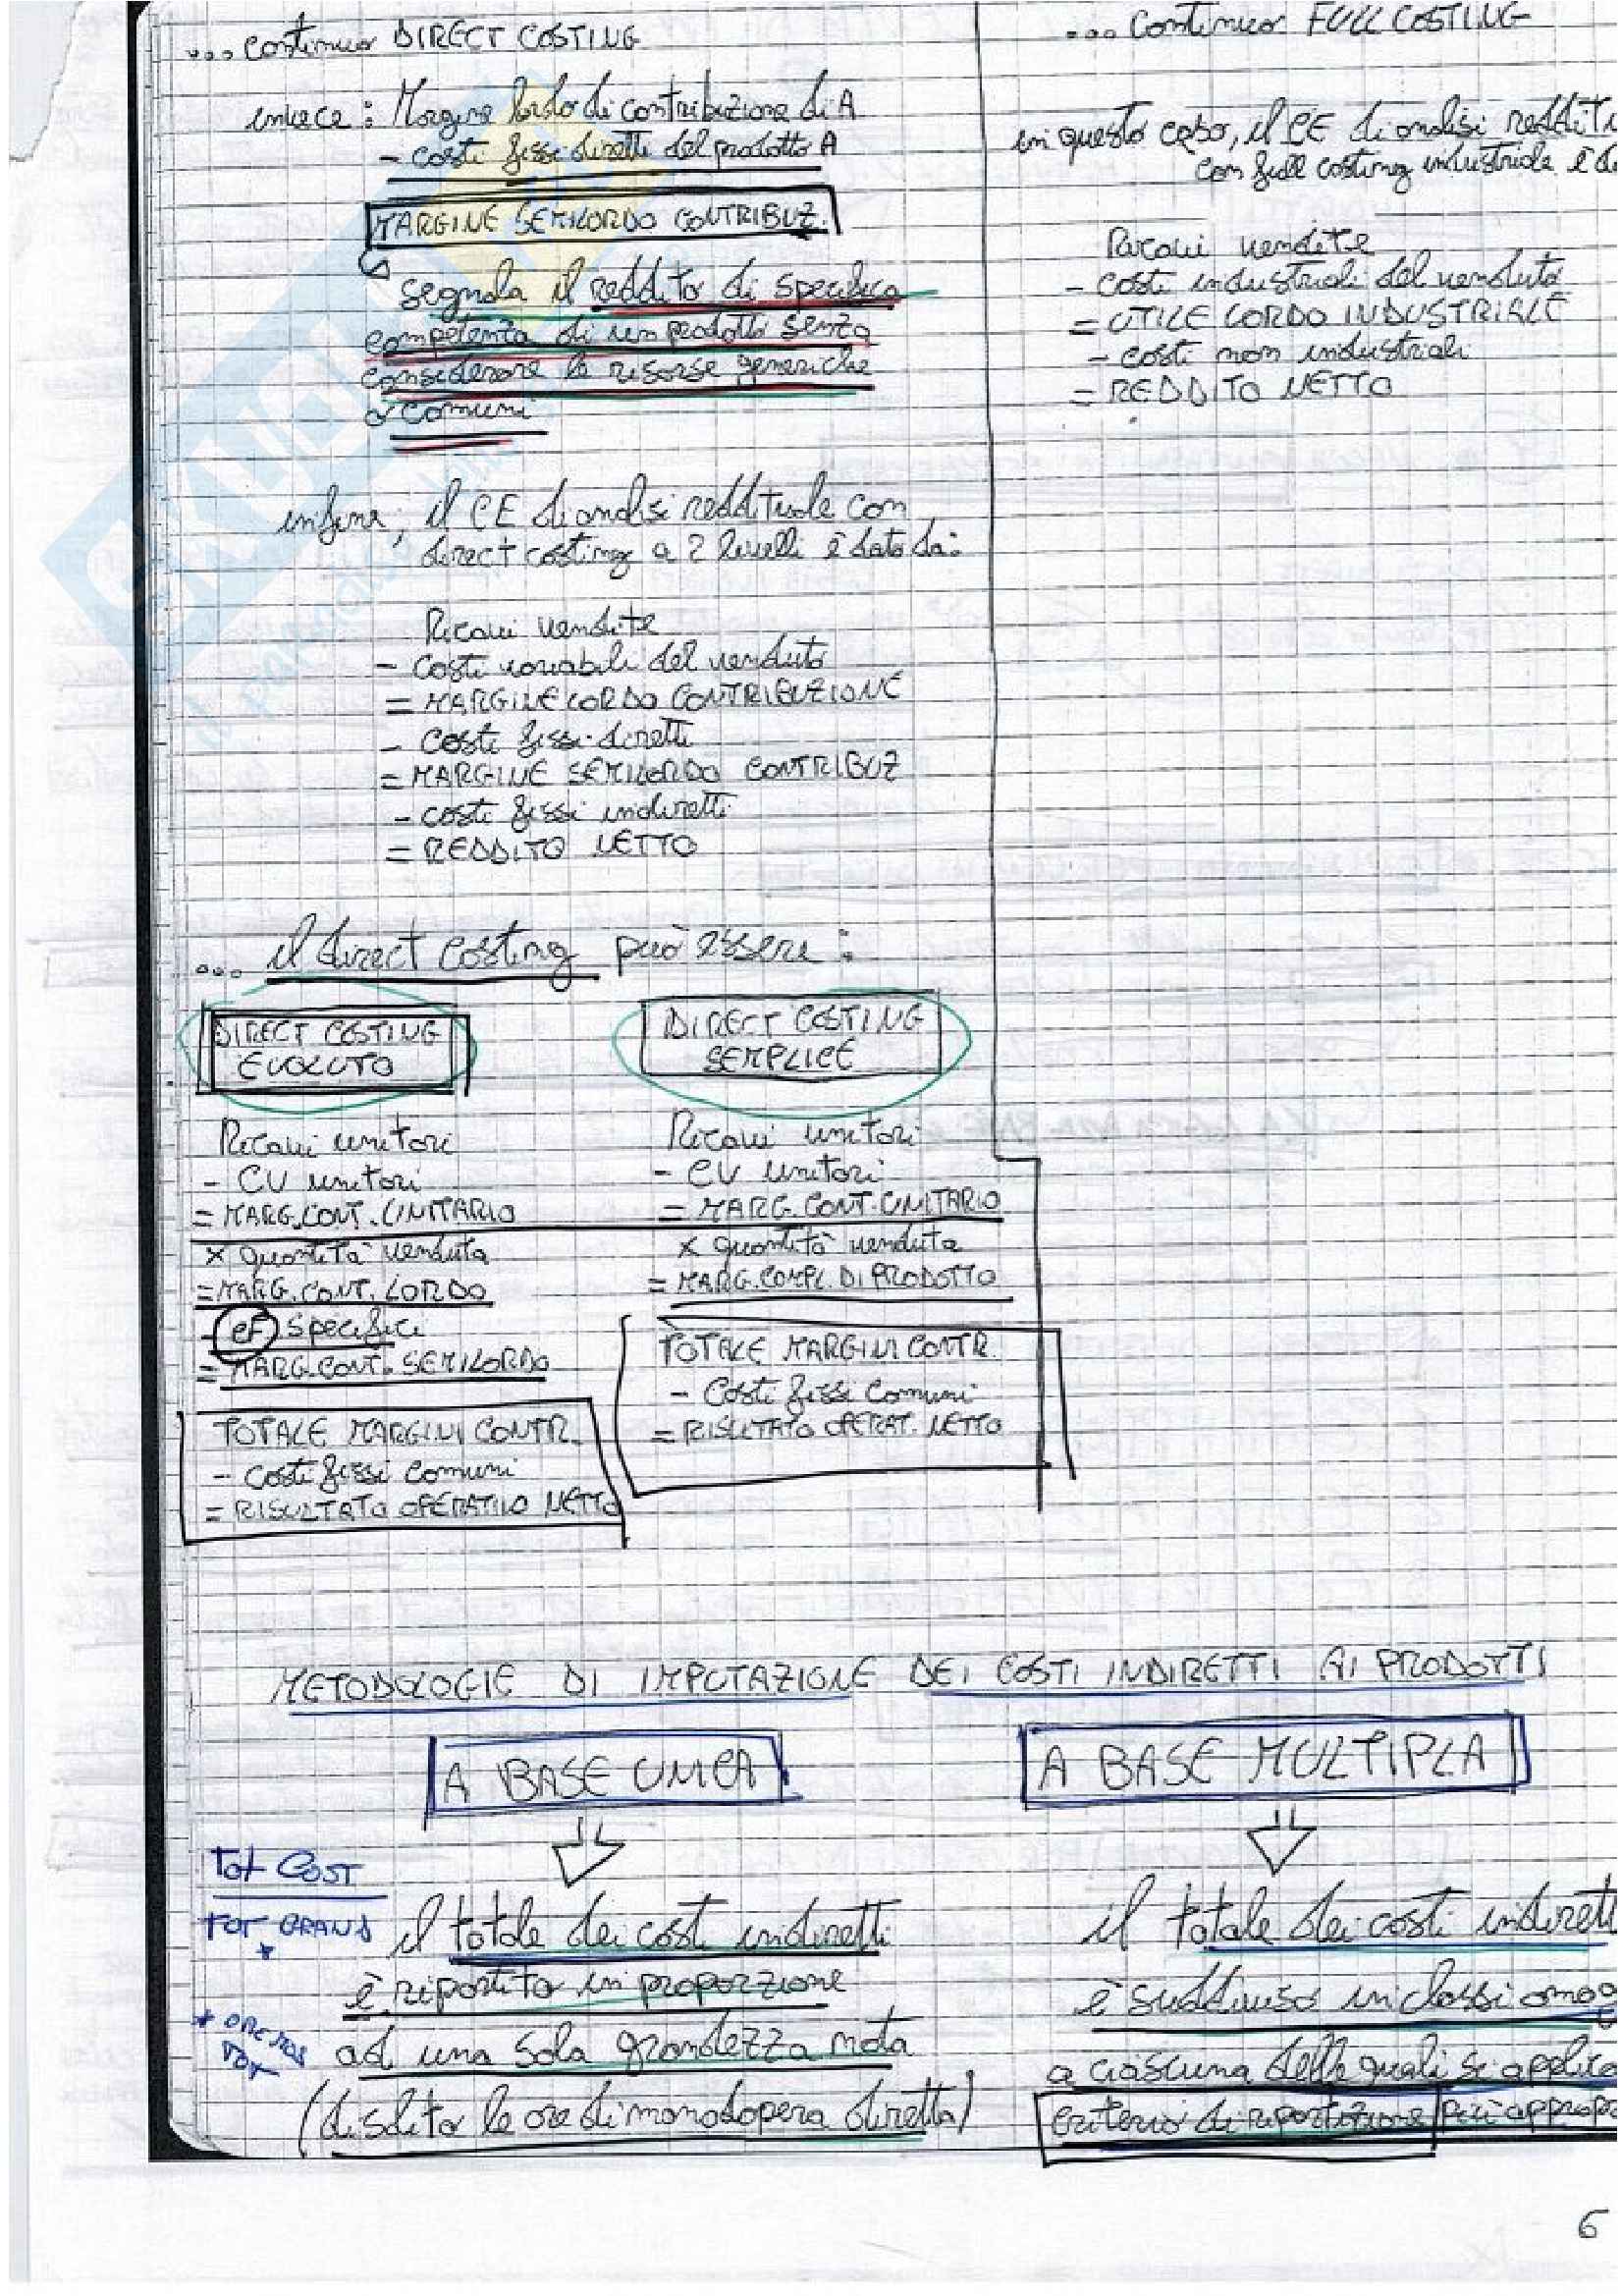 ... continuo DIRECT COSTING
invece: Margine lordo di contribuzione di A
- costi fissi diretti del prodotto A
MARGINE SEMILORDO CONTRIBUZ.
segnala il reddito di specifica
competenza di un prodotto senza
considerare le risorse generiche
o comuni
infine, il CE di analisi reddituale con
direct costing a 2 livelli è dato da:
Ricavi vendite
- costi variabili del venduto
= MARGINE LORDO CONTRIBUZIONE
- costi fissi diretti
= MARGINE SEMILORDO CONTRIBUZ
- costi fissi indiretti
= REDDITO NETTO
... continuo FULL COSTING
in questo caso, il CE di analisi reddit
con full costing industriale è d
Ricavi vendite
- costi industriali del venduto
= UTILE LORDO INDUSTRIALE
- costi non industriali
= REDDITO NETTO
... il direct costing può essere:
DIRECT COSTING
EVOLUTO
Ricavi unitari
- CV unitari
= MARG. CONT. UNITARIO
x quantità venduta
= MARG. CONT. LORDO
- CF specifici
= MARG. CONT. SEMILORDO
TOTALE MARGINI CONTR.
- Costi fissi comuni
= RISULTATO OPERATIVO NETTO
DIRECT COSTING
SEMPLICE
Ricavi unitari
- CV unitari
= MARG. CONT. UNITARIO
x quantità venduta
= MARG. COMPL. DI PRODOTTO
TOTALE MARGINI CONTR.
- Costi fissi comuni
= RISULTATO OPERAT. NETTO
METODOLOGIE DI IMPUTAZIONE DEI COSTI INDIRETTI AI PRODOTTI
A BASE UNICA
Tot COST
TOT GRAND
*
* ORE MOD
TOT
il totale dei costi indiretti
è ripartito in proporzione
ad una sola grandezza nota
(di solito le ore di manodopera diretta)
A BASE MULTIPLA
il totale dei costi indirett
è suddiviso in classi omog
a ciascuna delle quali si applica
criterio di ripartizione più approp
6